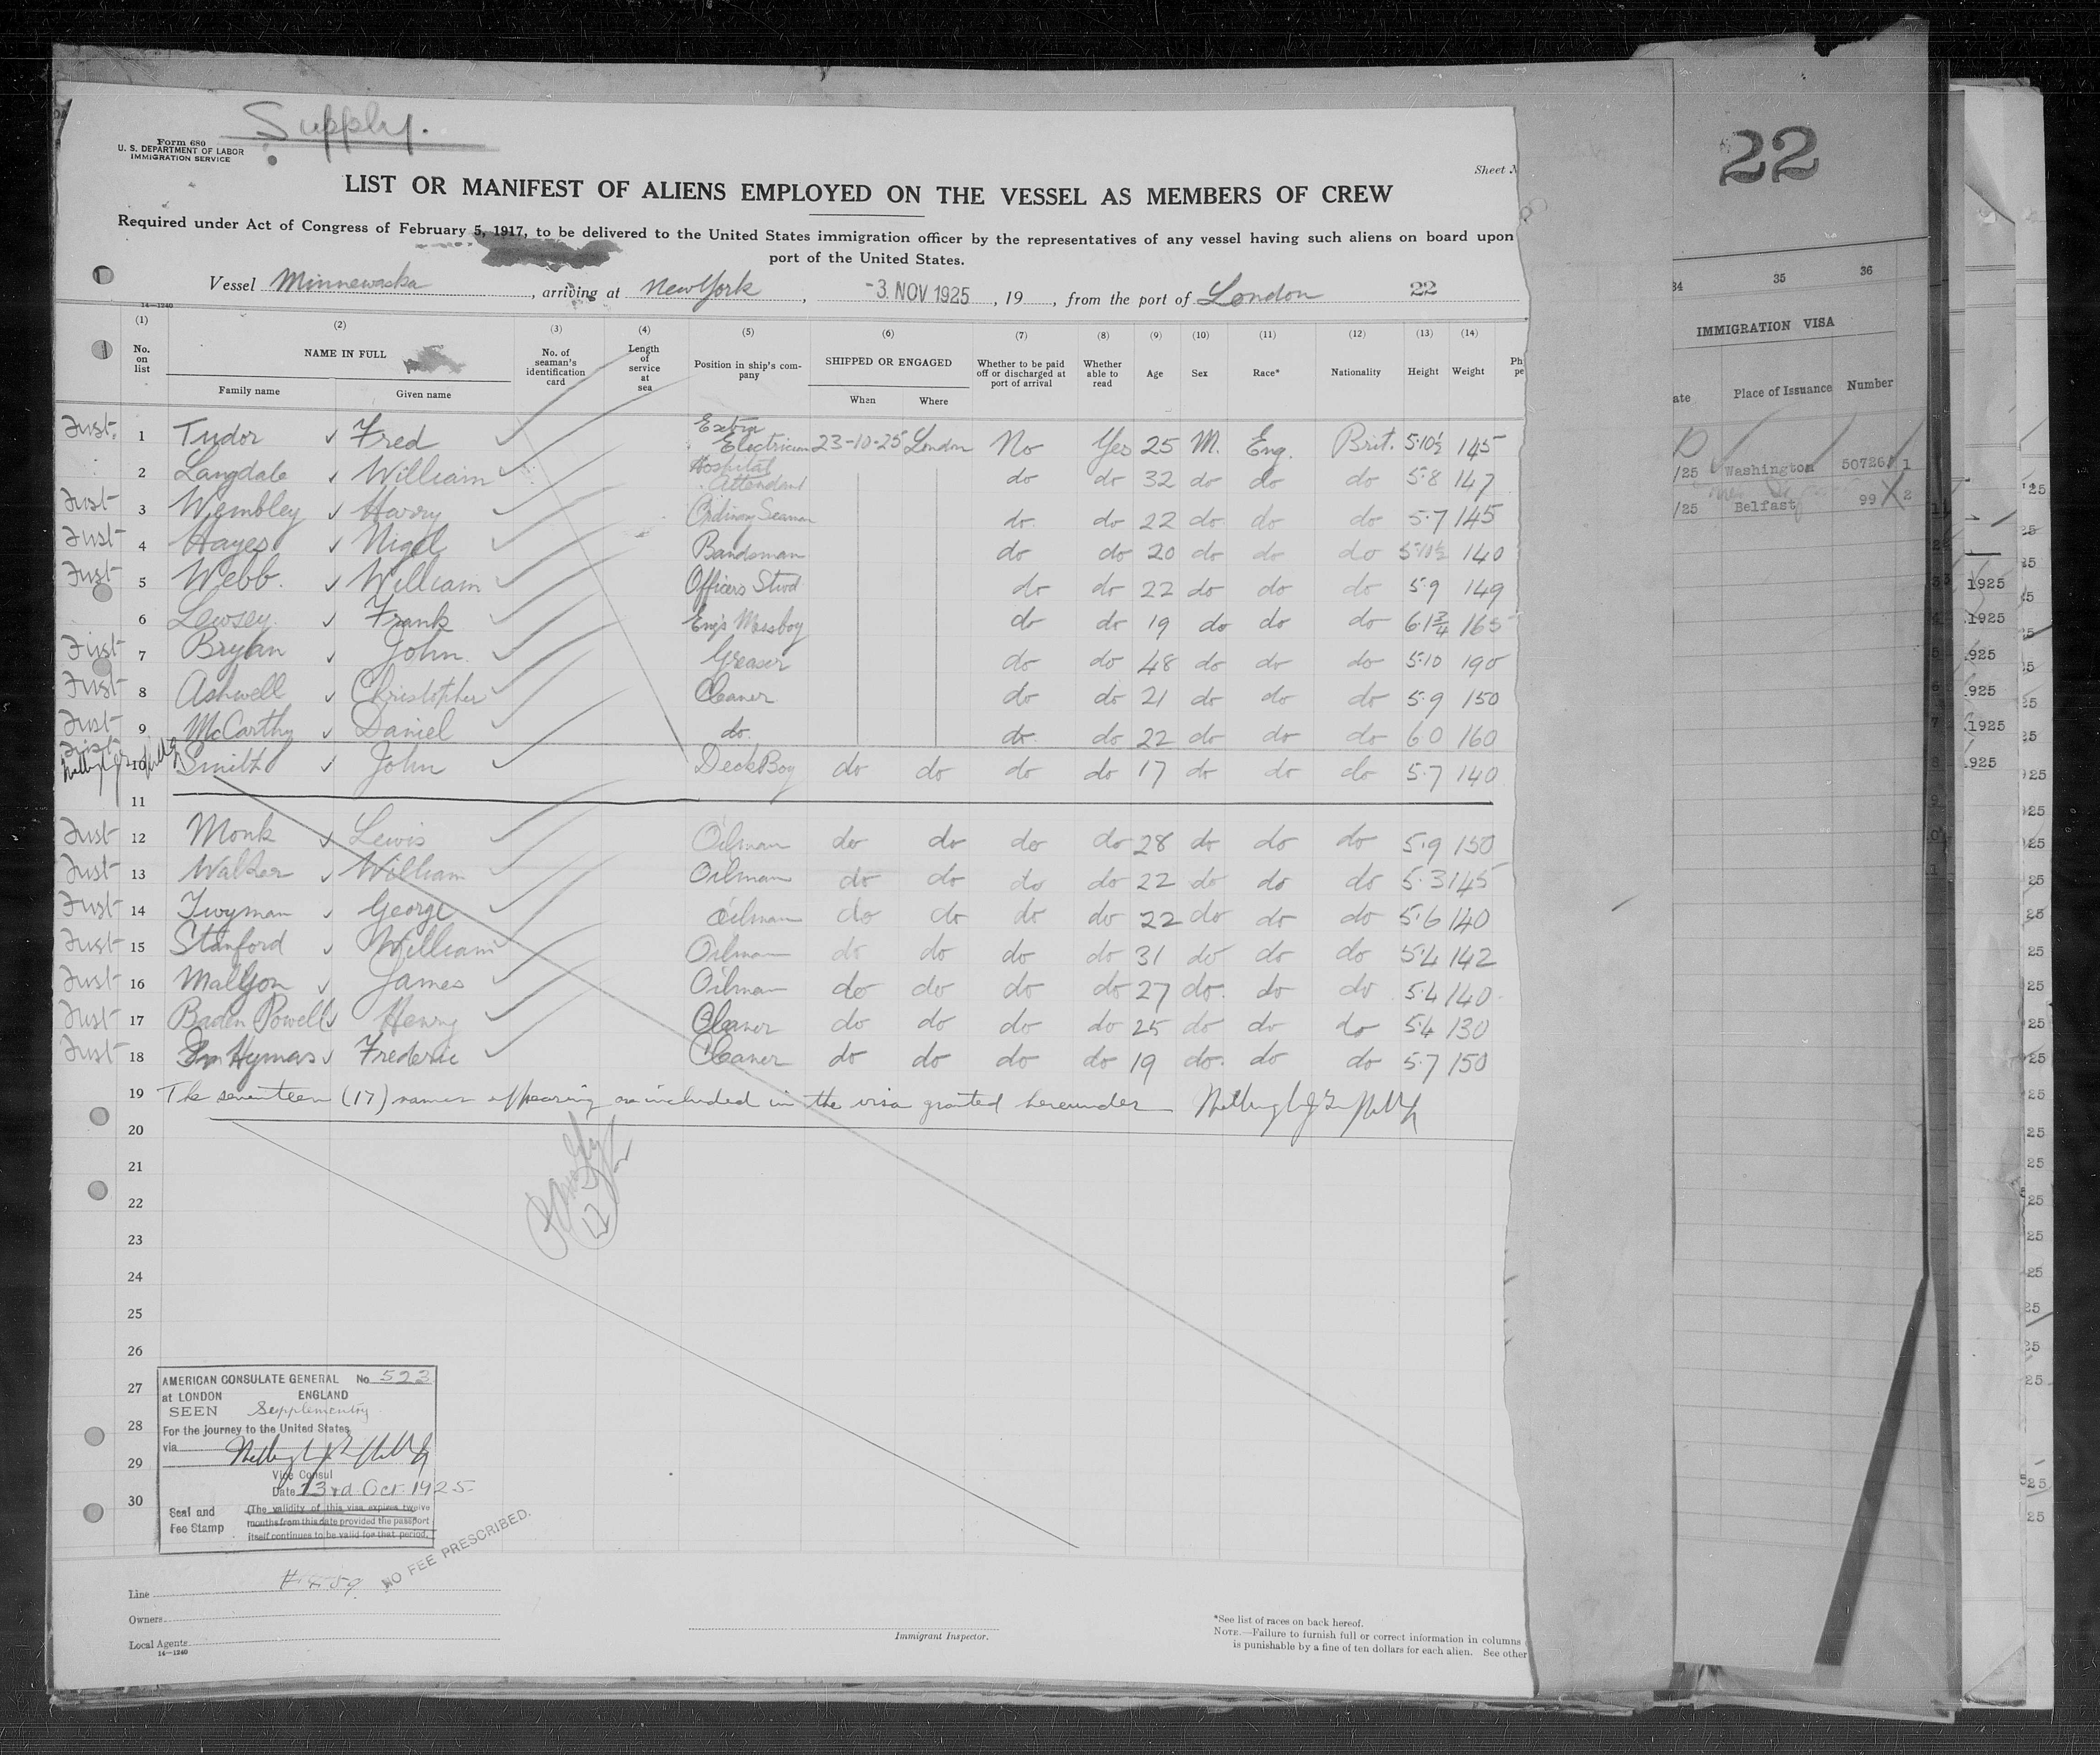 Supply.
Form 680
U. S. DEPARTMENT OF LABOR
IMMIGRATION SERVICE
Sheet
22
LIST OR MANIFEST OF ALIENS EMPLOYED ON THE VESSEL AS MEMBERS OF CREW
Required under Act of Congress of February 5, 1917, to be delivered to the United States immigration officer by the representatives of any vessel having such aliens on board upon
port of the United States.
Vessel Minnewaska, arriving at New York, -3 NOV 1925, 19, from the port of London 22
14-1240
(1) (2) (3) (4) (5) (6) (7) (8) (9) (10) (11) (12) (13) (14)
No. on list NAME IN FULL No. of seaman's identification card Length of service at sea Position in ship's company SHIPPED OR ENGAGED Whether to be paid off or discharged at port of arrival Whether able to read Age Sex Race* Nationality Height Weight Ph
Family name Given name When Where
1 Tudor Fred Extra Electrician 23-10-25 London No Yes 25 M. Eng. Brit. 5·10½ 145
2 Langdale William Hospital Attendant do do 32 do do do 5·8 147
3 Wembley Harry Ordinary Seaman do do 22 do do do 5·7 145
4 Hayes Nigel Bandsman do do 20 do do do 140
5 Webb. William Officers Stwd do do 22 do do do 5·9 149
6 Lewsey Frank Eng's Messboy do do 19 do do do 6·1¾ 165
7 Bryan John Greaser do do 48 do do do 5·10 190
8 Ashwell Christopher Cleaner do do 21 do do do 5·9 150
9 McCarthy Daniel do. do do 22 do do do 6 0 160
10 Smith John Deck Boy do do do do 17 do do do 5·7 140
11
12 Monk Lewis Oilman do do do do 28 do do do 5·9 150
13 Walker William Oilman do do do do 22 do do do 5·3 145
14 Twyman George Oilman do do do do 22 do do do 5·6 140
15 Stanford William Oilman do do do do 31 do do do 5·4 142
16 Mallyon James Oilman do do do do 27 do. do do 5·4 140
17 Baden Powell Henry Cleaner do do do do 25 do do do 5·4 130
18 Hymas Frederic Cleaner do do do do 19 do. do do 5·7 150
19 The seventeen (17) names appearing are included in the visa granted hereunder
20
21
22
23
24
25
26
27
28
29
30
AMERICAN CONSULATE GENERAL No 523
at LONDON ENGLAND
SEEN Supplementry
For the journey to the United States
via
Vice Consul
Date 23rd Oct 1925
Seal and Fee Stamp
(The validity of this visa expires twelve
months from this date provided the passport
itself continues to be valid for that period.
NO FEE PRESCRIBED.
Line
Owners
Local Agents
14-1240
Immigrant Inspector.
*See list of races on back hereof.
NOTE.—Failure to furnish full or correct information in columns
is punishable by a fine of ten dollars for each alien. See other
34 35 36
IMMIGRATION VISA
Place of Issuance Number
/25 Washington 1
/25 Belfast 99 2
1925
1925
925
925
1925
925